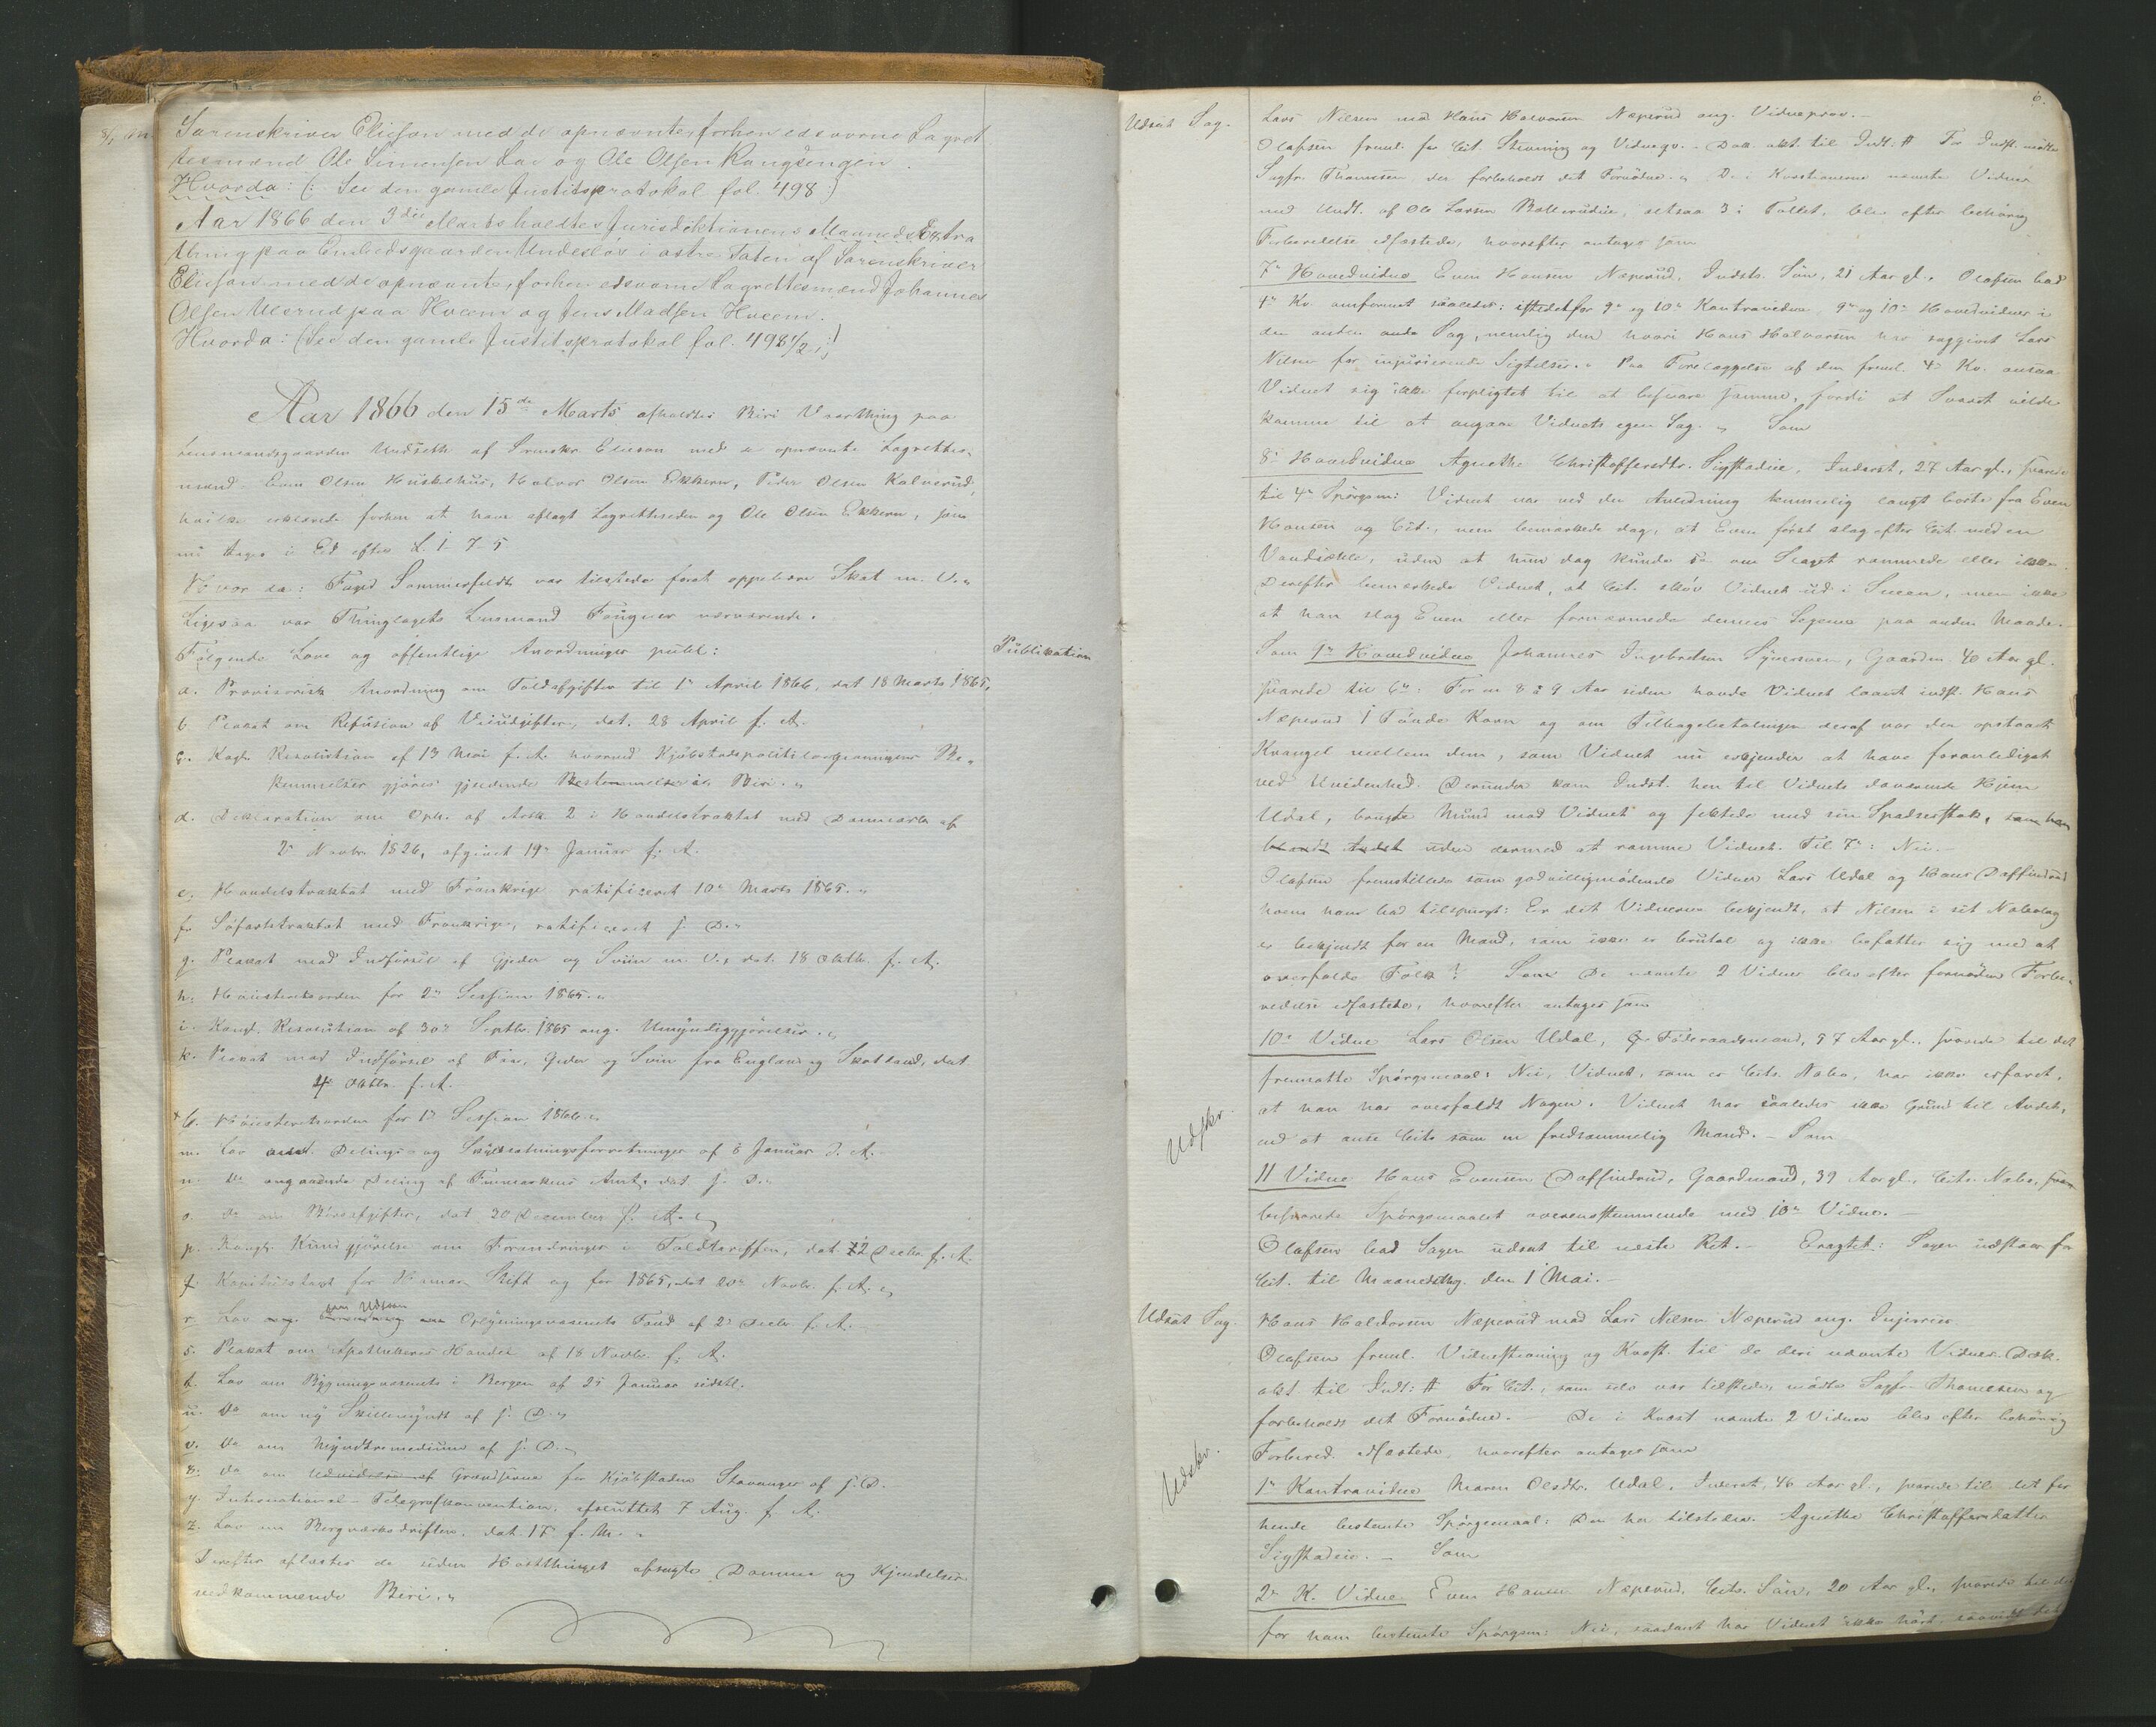 Sorenskriver Eliesson med de opnævnte, forhen edsvorne Lagret
tesmænd Ole Simensen Lae og Ole Olsen Rangsengen
Hvorda: (: See den gamle Justitsprotokol fol. 498 :)
Aar 1866 den 3die Marts holdtes Jurisdiktionens Maaneds Extra
thing paa Embedsgaarden Undeslös i østre Toten af Sorenskriver
Eliesson med de opnævnte, forhen edsvorne Lagrettesmænd Johannes
Olsen Ulerud paa Hveem og Jens Madsen Hveem.
Hvorda: (See den gamle Justitsprotokol fol. 498 1/2 ;)
Aar 1866 den 15de Marts afholdtes Biri Vaarthing paa
Lensmandsgaarden Undseth af Srenskr. Elieson med de opnævnte Lagrettes-
mænd Even Olsen Huskelhus, Halvor Olsen Ekkern, Peder Olsen Kalverud,
hvilke erklærede forhen at have aflagt Lagretteseden og Ole Olsen Ekkern, som
nu tages i Ed efter L. 1-7-5
Hvor da: Foged Sommerfeldt var tilstede forat oppebære Skat m. V.
Ligesaa var Thinglagets Lensmand Fougner nærværende.
Følgende Love og offentlige Anordninger publ:
Publikation
a. Provisorisk Anordning om Toldafgifter til 1ste April 1866, dat 18 Marts 1865,
b. Plakat om Refusion af Veiudgifter, dat. 28 April f. A.
c. Kngl. Resolution af 13 Mai f. A. hvorved Kjøbstadspolitilovgivningens Be-
stemmelser gjøres gjeldende Bestemmelser i Biri.
d. Deklaration om Oph. af Artk. 2 i Handelstraktat med Danmark af
2 Novbr. 1826, afgivet 19 Januar f. A.
e. Handelstraktat med Frankrige ratificeret 10 Marts 1865.
f. Søfartstraktat med Frankrige, ratificeret s. D.
g. Plakat mod Indførsel af Gjeder og Sviin m. V., dat. 18 Oktb. f. A.
h. Høiesteretsorden for 2den Session 1865.
i. Kongl. Resolution af 30 Septbr. 1865 ang. Umyndiggjørelser.
k. Plakat mod Indførsel af Faar, Gjeder og Sviin fra England og Skotland, dat.
4 Oktbr. f. A.
l. Høiesteretsorden for 1ste Session 1866.
m. Lov Delings og Skyldsætningsforretninger af 6 Januar d. A.
n. Do angaaende Deling af Finmarkens Amt, dat. s. D.
o. Do om Børsafgifter, dat 20 December f. A.
p. Kongl. Kundgjørelse om Forandringer i Toldtariffen, dat. 12 Decbr. f. A.
q. Kapitelstaxt for Hamar Stift og for 1865, dat 20 Novbr. f. A.
r. Lov ang. Oplysningsvæsenets Fond af 2 Decbr. f. A.
s. Plakat om Apothekeres Handel af 18 Novbr. f. A.
t. Lov om Bygningsvæsenets i Bergen af 25 Januar sidstl.
u. Do om ny Skillemynt af s. D.
v. Do om Myndtremedium af s. D.
x. do om Udvidelse af Grændserne for Kjøbstaden Stavanger af s. D.
y. International-Telegrafkonvention, afsluttet 7 Aug. f. A.
z. Lov om Bergværksdriften, dat. 17 f. M.
Derefter oplæstes de siden Høstthinget afsagte Domme og Kjendelser
vedkommende Biri.
6.
Udsat Sag.
Lars Nilsen mod Hans Halvorsen Næperud ang. Vidneprov.
Olafsen freml. for Cit. Stevning og Vidneqv. - Dok. akt. til Indt: # For Indst. mødte
Sagfr. Thomesen, der forbeholdt det Fornødne. De i Kvæstionerne nævnte Vidner
med Undt. af Ole Larsen, altsaa 3 i Tallet, blev efter behørig
Forberedelse edfæstede, hvorefter antages som
7de Hovedvidne Even Hansen Næperud, Indsts. Søn, 21 Aar gl. Olafsen bad
4de Kv. omformet saaledes: istedetfor 9de og 10de Kontravidne 9de og 10de Hovedvidner i
den anden anden Sag, nemlig den hvori Hans Halvorsen har sagsøgt Lars
Nilsen for injurierende Sigtelser. Paa Forelæggelse af den freml. 4de Kv. ansaa
Vidnet sig ikke forpligtet til at besvare samme, fordi at Svaret vilde
komme til at angaae Vidnets egen Sag. Som
8de Hovedvidne Agnethe Christoffersdtr. Sigstadeie, Inderst, 27 Aar gl., svarede
til 4de Spørgsm: Vidnet var ved den Anledning temmelig langt borte fra Even
Hansen og Cit., men bemærkede dog, at Even først slog efter Cit. med en
Vandbøtte, uden at hun dog kunde se om Slaget rammede eller ikke.
Derefter bemærkede Vidnet, at Cit. skjøv Vidnet ud i Sneen, men ikke
at han slog Even eller fornærmede dennes Legeme paa anden Maade.
Som 9de Hovedvidne Johannes Ingebretsen, Gaardm. 40 Aar gl.
svarede til 6te: For en 8 à 9 Aar siden havde Vidnet laant indst. Hans
Næperud 1 Tønde Korn og om Tilbagebetalingen deraf var der opstaaet
Krangel mellem dem, som Vidnet nu erkjender at have foranlediget
ved Uvidenhed. Derunder kom Indst. hen til Vidnets daværende Hjem
Udal, brugte Mund mod Vidnet og fektede med sin Spadserstok, som han
uden dermed at ramme Vidnet. Til 7de: Nei.
Olafsen fremstillede som godvilligmødende Vidner Lars Udal og Hans Daffindrud
hvem han bad tilspurgt: Er det Vidnerne bekjendt, at Nilsen i sit Nabolag
er bekjendt for en Mand, som ikke er brutal og ikke befatter sig med at
overfalde Folk? Som De nævnte 2 Vidner blev efter fornøden Forbe-
redelse edfæstede, hvorefter antages som
10de Vidne Lars Olsen Udal, Føderaadsmand, 57 Aar gl., svarede til det
fremsatte Spørgsmaal: Nei, Vidnet, som er Cits. Nabo, har ikke erfaret,
at han har overfaldt Nogen. Vidnet har saaledes ikke Grund til Andet,
end at anse Cit. som en fredsommelig Mand. - Som
Udskr.
11 Vidne Hans Evensen Daffindrud, Gaardmand, 39 Aar gl., Cits. Nabo,
besvarede Spørgsmaalet overensstemmende med 10de Vidne.
Olafsen bad Sagen udsat til næste Ret. - Eragtet: Sagen udstaar for
Cit. til Maanedsthg. den 1 Mai.
Udsat Sag.
Hans Halvorsen Næperud mod Lars Nilsen Næperud ang. Injurier
Olafsen freml. Vidnestevning og Kvæst. til de deri nævnte Vidner. Dok.
akt til Indt: # For Cit., som selv var tilstede, mødte Sagfr. Thomesen og
forbeholdt det Fornødne. - De i Kvæst nævnte 2 Vidner blev efter behørig
Forbered. edfæstede, hvorefter antages som
Udskr.
1ste Kontravidne Maren Olsdtr. Udal, Inderst, 46 Aar gl., svarede til det for
hende bestemte Spørgsmaal: Den her tilstedev. Agnethe Christoffersdatter
Sigstadeie. - Som
2de K. Vidne. Even Hansen Næperud, Cits. Søn, 20 Aar gl., svarede til det
for ham bestemte Spørgsm: Nei, saadant har Vidnet ikke hørt, saavidt det